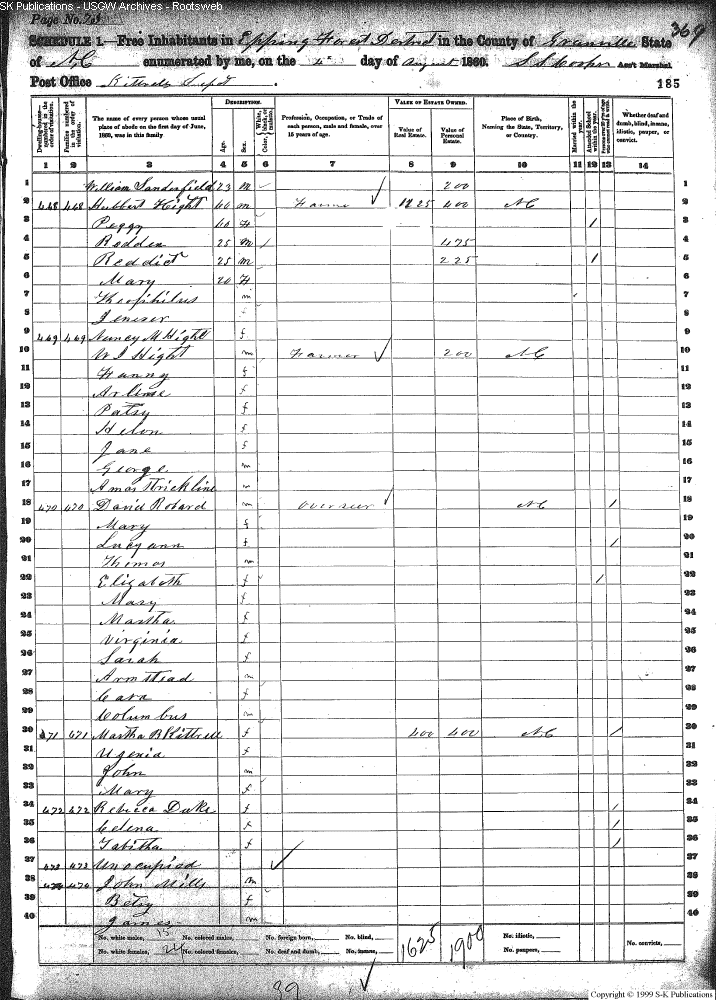 SK Publications - USGW Archives - Rootsweb
Page No. 369
SCHEDULE 1.—Free Inhabitants in Epping Forest District in the County of Granville State
of NC enumerated by me, on the day of August 1860. S S Cooper Ass't Marshal.
Post Office Kittrells Depot 185
DESCRIPTION. VALUE OF ESTATE OWNED.
Dwelling-houses—numbered in the order of visitation. Families numbered in the order of visitation. The name of every person whose usual place of abode on the first day of June, 1860, was in this family Age. Sex. Color, White, black, or mulatto. Profession, Occupation, or Trade of each person, male and female, over 15 years of age. Value of Real Estate. Value of Personal Estate. Place of Birth, Naming the State, Territory, or Country. Married within the year. Attended School within the year. Whether deaf and dumb, blind, insane, idiotic, pauper, or convict.
1 2 3 4 5 6 7 8 9 10 11 12 13 14
1 William Sanderfield 23 m 200 1
2 448 448 Hubbert Hight 60 m 1225 400 NC 2
3 Peggy 60 F / 3
4 Redden 25 m / 475 4
5 Reddick 25 m 225 / 5
6 Mary 20 F 6
7 Theophilus m 7
8 f 8
9 469 469 Nancy M Hight f 9
10 W J Hight m Farmer 200 NC 10
11 Fanny f 11
12 f 12
13 Patsy f 13
14 Helon f 14
15 Jane f 15
16 George m 16
17 Amos Strickline m 17
18 470 470 David Robard m overseer NC / 18
19 Mary f 19
20 Lucy ann f / 20
21 Thomas m 21
22 Elizabeth f / 22
23 Mary f 23
24 Martha f 24
25 Virginia f 25
26 Sarah f 26
27 Armstead m 27
28 Cara f 28
29 Columbus m 29
30 471 471 Martha B Kittrell f 400 400 NC / 30
31 Ugenia f 31
32 John m 32
33 Mary f 33
34 472 472 Rebecca Duke f / 34
35 Celena f / 35
36 Tabitha f / 36
37 473 473 Unoccupied 37
38 474 474 John Mills m 38
39 Betsy f 39
40 James m 40
No. white males, 15 No. colored males, No. foreign born, No. blind, 1625 1900 No. idiotic, No. convicts,
No. white females, 24 No. colored females, No. deaf and dumb, No. insane, No. paupers,
39
Copyright © 1999 S-K Publications